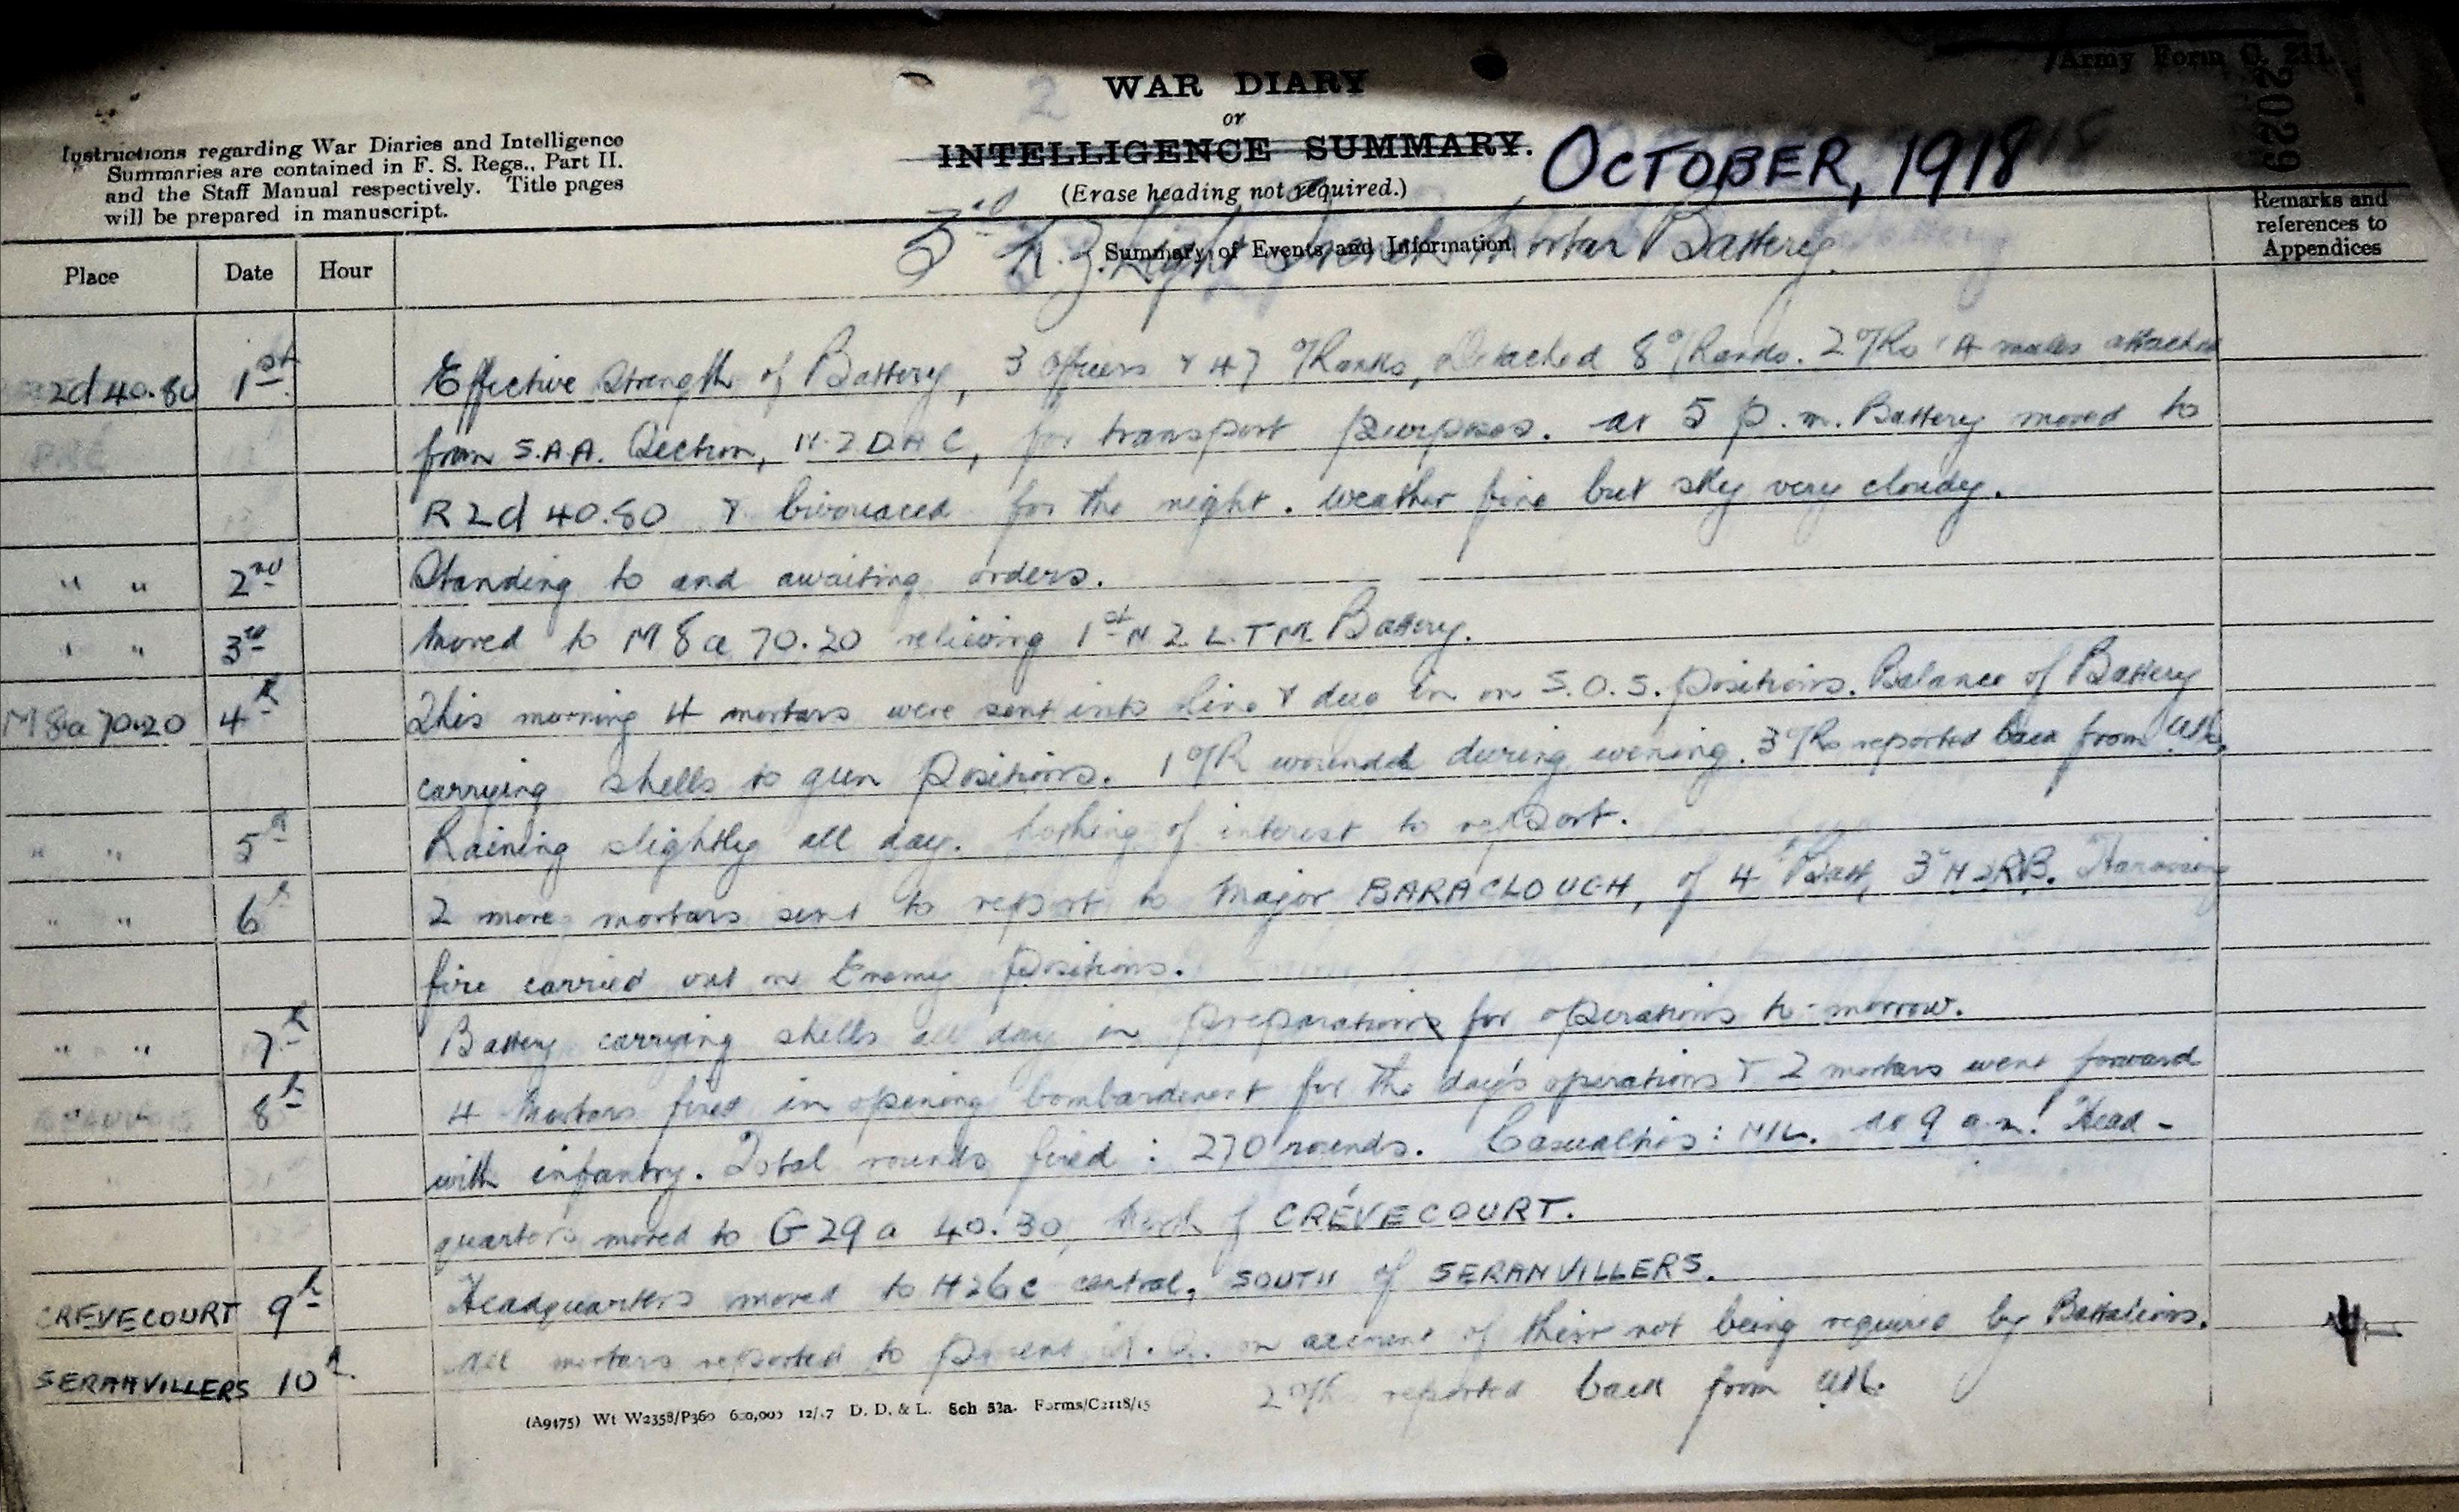 Army Form C. 211
2029
WAR DIARY
or
INTELLIGENCE SUMMARY.
OCTOBER, 1918
(Erase heading not required.)
Instructions regarding War Diaries and Intelligence
Summaries are contained in F. S. Regs., Part II.
and the Staff Manual respectively. Title pages
will be prepared in manuscript.
3rd N.Z. Light Trench Mortar Battery.
Place Date Hour Summary of Events and Information Remarks and references to Appendices
2d 40.80 1st Effective Strength of Battery, 3 Officers & 47 O/Ranks, Detached 8 O/Ranks. 2 O/Rs 4 mules attached
from S.A.A. Section, N.Z D.A.C, for transport purposes. At 5 p.m. Battery moved to
R2d 40.80 & bivouaced for the night. Weather fine but sky very cloudy.
" " 2nd Standing to and awaiting orders.
" " 3rd Moved to M8a 70.20 relieving 1st N Z L.T.M. Battery.
M8a 70.20 4th This morning 4 mortars were sent into line & dug in on S.O.S. positions. Balance of Battery
carrying shells to gun positions. 1 O/R wounded during evening. 3 O/Rs reported back from
" " 5th Raining slightly all day. Nothing of interest to report.
" " 6th 2 more mortars sent to report to Major BARACLOUGH, of 4th Batt, 3rd N Z R B. Harassing
fire carried out on Enemy positions.
" " 7th Battery carrying shells all day in preparation for operations to-morrow.
8th 4 Mortars fired in opening bombardment for the day's operations & 2 mortars went forward
with infantry. Total rounds fired : 270 rounds. Casualties : NIL. At 9 a.m. Head-
quarters moved to G29a 40.30, North of CRÉVECOURT.
CREVECOURT 9th Headquarters moved to H26c central, SOUTH of SERANVILLERS.
SERANVILLERS 10th All mortars reported to on account of their not being required by Battalions.
2 O/Rs reported back from
4
(A9475) Wt W2358/P360 600,000 12/17 D. D. & L. Sch 52a. Forms/C2118/15